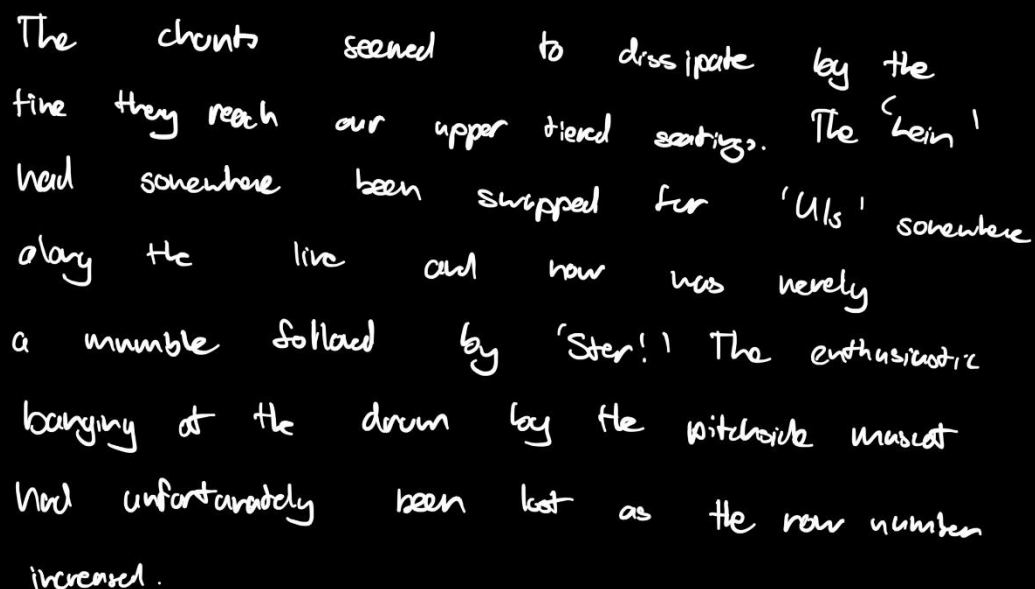 The chants seemed to dissipate by the
time they reach our upper tiered seatings. The 'Lein'
had somewhere been swapped for 'Uls' somewhere
along the line and now was merely
a mumble followed by 'Ster!' The enthusiastic
banging of the drum by the pitchside mascot
had unfortunately been lost as the row number
increased.